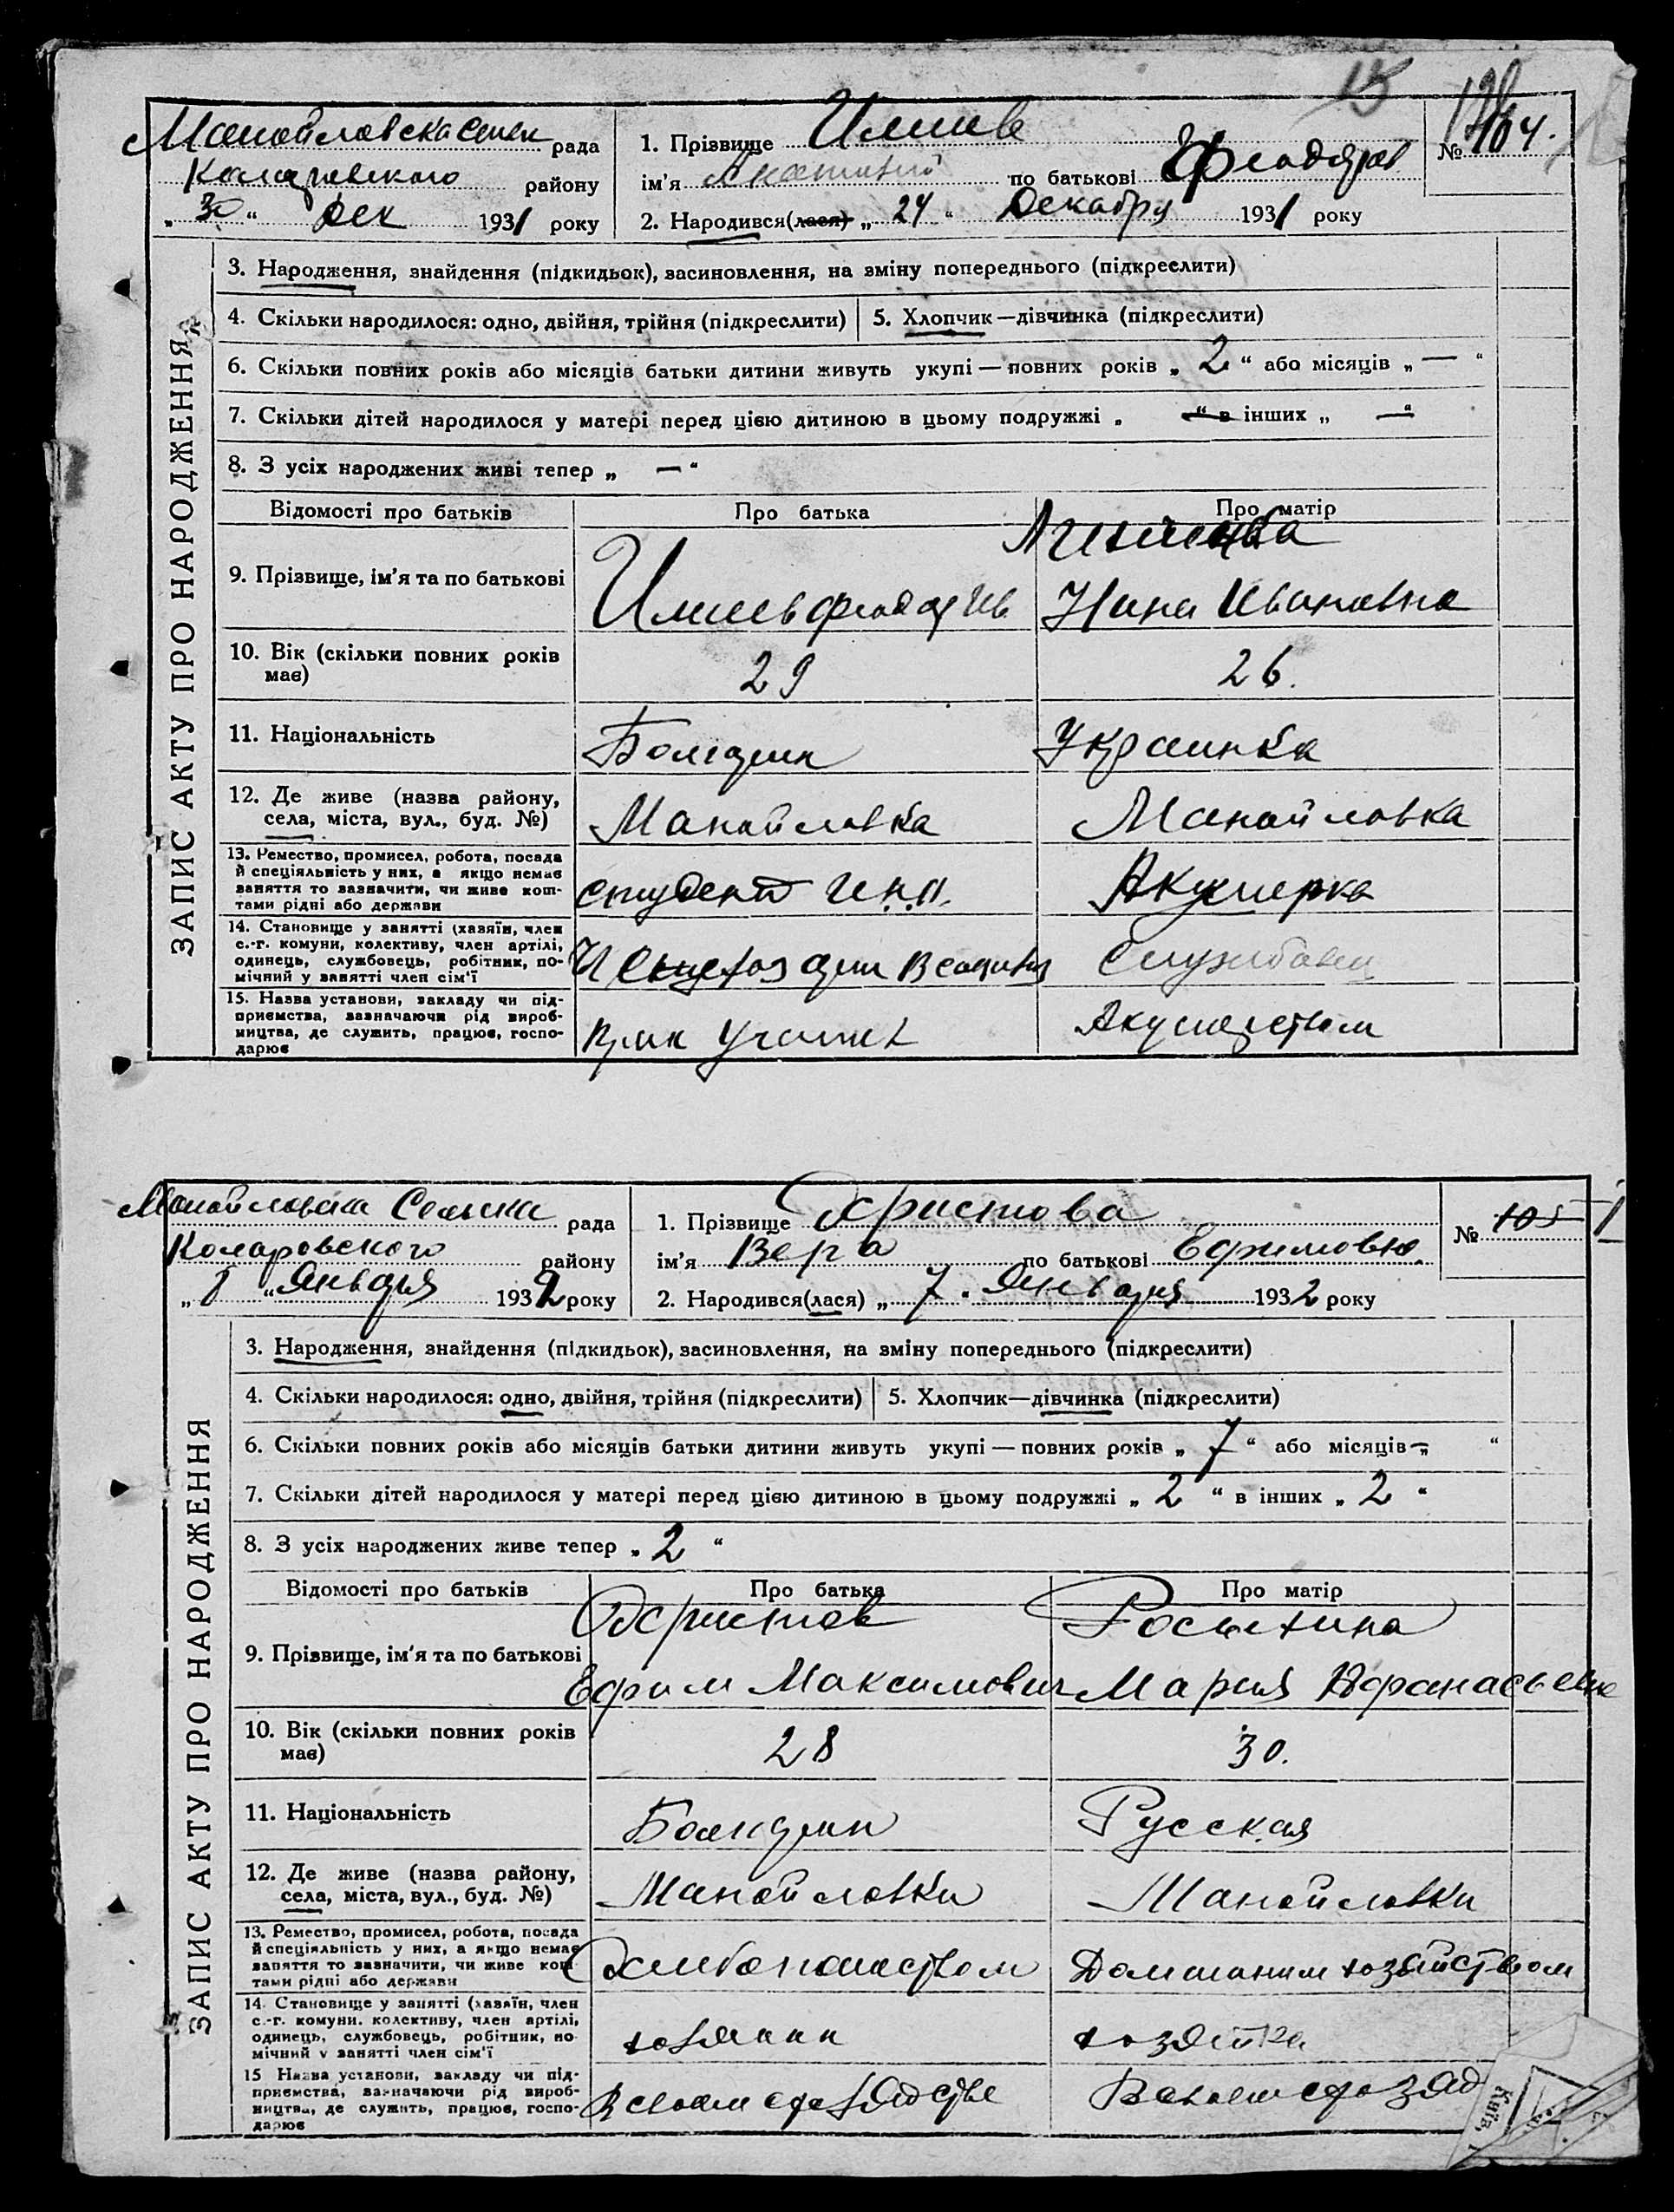 15
Манойловска сельск рада
Коларовского району
„ 30 “ Дек 1931 року
1. Прізвище Илиев
ім'я Анатолий по батькові Феодоров
№ 104.
2. Народився(лася) „ 24 “ Декабря 1931 року
ЗАПИС АКТУ ПРО НАРОДЖЕННЯ
3. Народження, знайдення (підкидьок), засиновлення, на зміну попереднього (підкреслити)
4. Скільки народилося: одно, двійня, трійня (підкреслити) 5. Хлопчик—дівчинка (підкреслити)
6. Скільки повних років або місяців батьки дитини живуть укупі — повних років „ 2 “ або місяців „ — “
7. Скільки дітей народилося у матері перед цією дитиною в цьому подружжі „ — “ в інших „ — “
8. З усіх народжених живі тепер „ — “
Відомості про батьків Про батька Про матір
9. Прізвище, ім'я та по батькові
Илиев Феодор Ив
Нина Ивановна
10. Вік (скільки повних років має)
29
26.
11. Національність
Болгарин
Украинка
12. Де живе (назва району,
села, міста, вул., буд. №)
Манойловка
Манойловка
13. Ремество, промисел, робота, посада
й спеціяльність у них, а якщо немає
заняття то зазначити, чи живе кош-
тами рідні або держави
студент
Акушерка
14. Становище у занятті (хазяїн, член
с.-г. комуни, колективу, член артілі,
одинець, службовець, робітник, по-
мічний у занятті член сім'ї
15. Назва установи, закладу чи під-
приємства, зазначаючи рід вироб-
ництва, де служить, працює, госпо-
дарює
Акушерством
Манойловска Сельска рада
Коларовского району
„ 8 “ Января 1932 року
1. Прізвище Христова
ім'я Вера по батькові Ефимовна
№ 105 1
2. Народився(лася) „ 7 . Января 1932 року
ЗАПИС АКТУ ПРО НАРОДЖЕННЯ
3. Народження, знайдення (підкидьок), засиновлення, на зміну попереднього (підкреслити)
4. Скільки народилося: одно, двійня, трійня (підкреслити) 5. Хлопчик—дівчинка (підкреслити)
6. Скільки повних років або місяців батьки дитини живуть укупі — повних років „ 7 “ або місяців „ — “
7. Скільки дітей народилося у матері перед цією дитиною в цьому подружжі „ 2 “ в інших „ 2 “
8. З усіх народжених живе тепер „ 2 “
Відомості про батьків Про батька Про матір
9. Прізвище, ім'я та по батькові
Христов
Ефим Максимович
Мария Афанасьевна
10. Вік (скільки повних років має)
28
30.
11. Національність
Болгарин
Русская
12. Де живе (назва району,
села, міста, вул., буд. №)
Манойловки
Манойловки
13. Ремество, промисел, робота, посада
й спеціяльність у них, а якщо немає
заняття то зазначити, чи живе кош-
тами рідні або держави
Хлебопашеством
Домашним хозяйством
14. Становище у занятті (хазяїн, член
с.-г. комуни, колективу, член артілі,
одинець, службовець, робітник, по-
мічний у занятті член сім'ї
хозяин
хозяйка
15 Назва установи, закладу чи під-
приємства, зазначаючи рід вироб-
ництва, де служить, працює, госпо-
дарює
В своем хозяйстве
В своем хозяй
Київ,